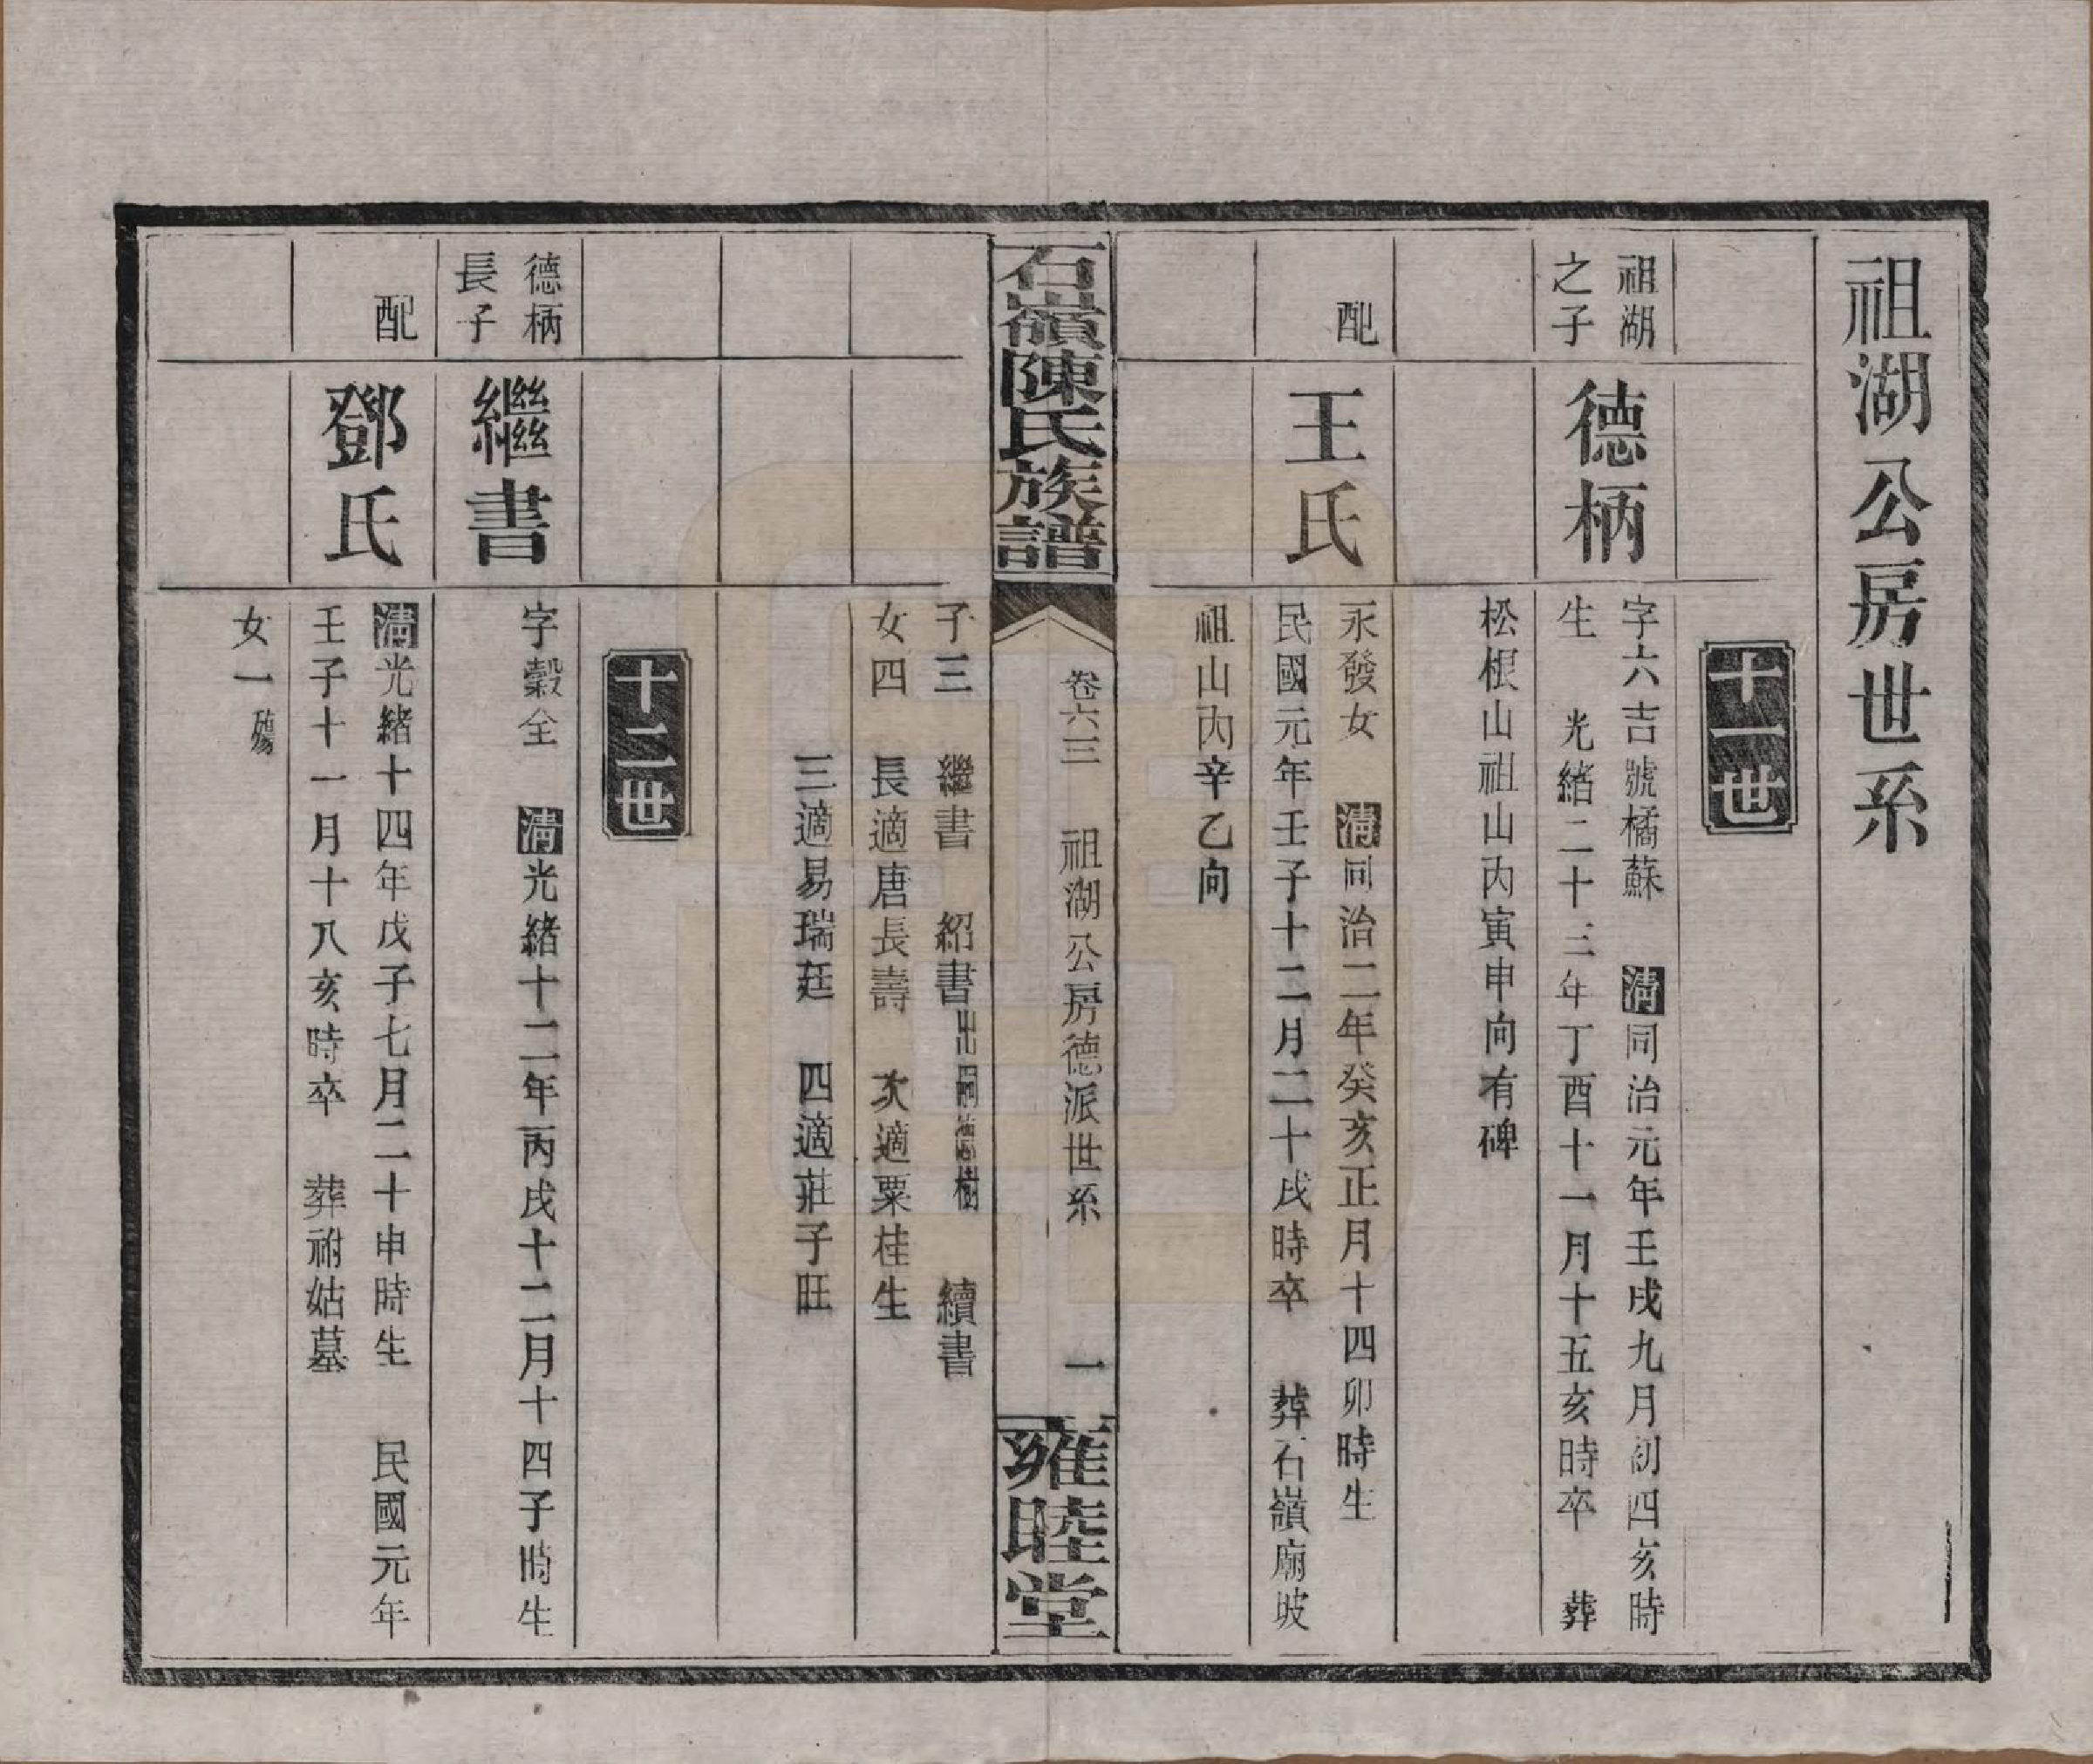 祖湖公房世系
十一世
祖湖
之子
德柄
字六吉號橘蘇　清同治元年壬戌九月初四亥時
生　光緒二十三年丁酉十一月十五亥時卒　葬
松根山祖山内寅申向有碑
配
王氏
永發女　清同治二年癸亥正月十四卯時生
民國元年壬子十二月二十戌時卒　葬石嶺廟坡
祖山内辛乙向
石嶺陳氏族譜
卷六三　祖湖公房德派世系　一
雍睦堂
子三　繼書　紹書出嗣　樹　續書
女四　長適唐長壽　次適粟桂生
三適易瑞廷　四適莊子旺
十二世
德柄
長子
繼書
字穀全　清光緒十二年丙戌十二月十四子時生
配
鄧氏
清光緒十四年戊子七月二十申時生　民國元年
壬子十一月十八亥時卒　葬祔姑墓
女一殤